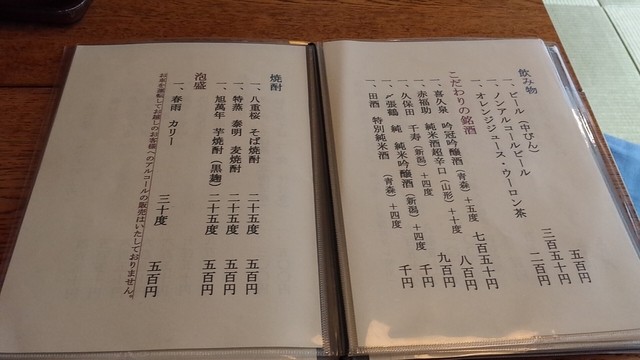 飲み物
一、ビール(中びん) 五百円
一、ノンアルコールビール 三百五十円
一、オレンジジュース・ウーロン茶 二百円
こだわりの銘酒
一、喜久泉 吟冠吟醸酒(青森)+五度 七百五十円
一、赤福助 純米酒超辛口(山形)+十度 八百円
一、久保田 千寿(新潟)+四度 九百円
一、〆張鶴 純 純米吟醸酒(新潟)+四度 千円
一、田酒 特別純米酒(青森)+四度 千円
焼酎
一、八重桜 そば焼酎 二十五度 五百円
一、特蒸 泰明 麦焼酎 二十五度 五百円
一、旭萬年 芋焼酎(黒麹)二十五度 五百円
泡盛
一、春雨 カリー 三十度 五百円
お車を運転してお越しのお客様へのアルコールの販売はいたしておりません。